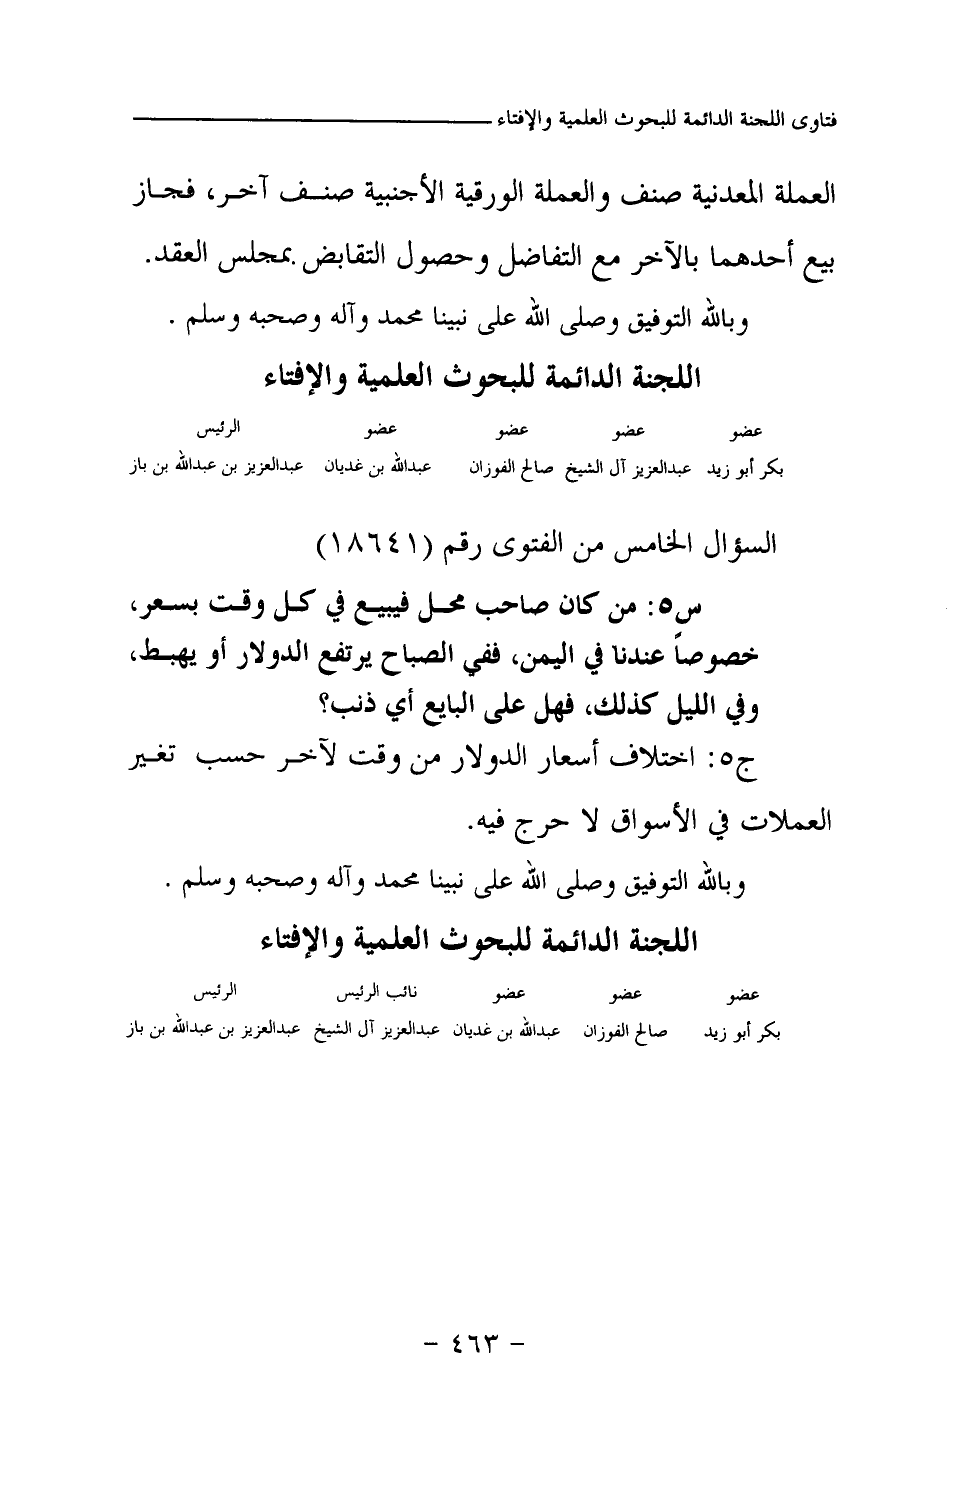 فتاوى اللجنة الدائمة للبحوث العلمية والإفتاء
العملة المعدنية صنف والعملة الورقية الأجنبية صنف آخر، فجاز
بيع أحدهما بالآخر مع التفاضل وحصول التقابض بمجلس العقد.
وبالله التوفيق وصلى الله على نبينا محمد وآله وصحبه وسلم .
اللجنة الدائمة للبحوث العلمية والإفتاء
عضو عضو عضو عضو الرئيس
بكر أبو زيد عبدالعزيز آل الشيخ صالح الفوزان عبدالله بن غديان عبدالعزيز بن عبدالله بن باز
السؤال الخامس من الفتوى رقم (١٨٦٤١)
س٥: من كان صاحب محل فيبيع في كل وقت بسعر،
خصوصاً عندنا في اليمن، ففي الصباح يرتفع الدولار أو يهبط،
وفي الليل كذلك، فهل على البايع أي ذنب؟
ج٥: اختلاف أسعار الدولار من وقت لآخر حسب تغير
العملات في الأسواق لا حرج فيه.
وبالله التوفيق وصلى الله على نبينا محمد وآله وصحبه وسلم .
اللجنة الدائمة للبحوث العلمية والإفتاء
عضو عضو عضو نائب الرئيس الرئيس
بكر أبو زيد صالح الفوزان عبدالله بن غديان عبدالعزيز آل الشيخ عبدالعزيز بن عبدالله بن باز
- ٤٦٣ -